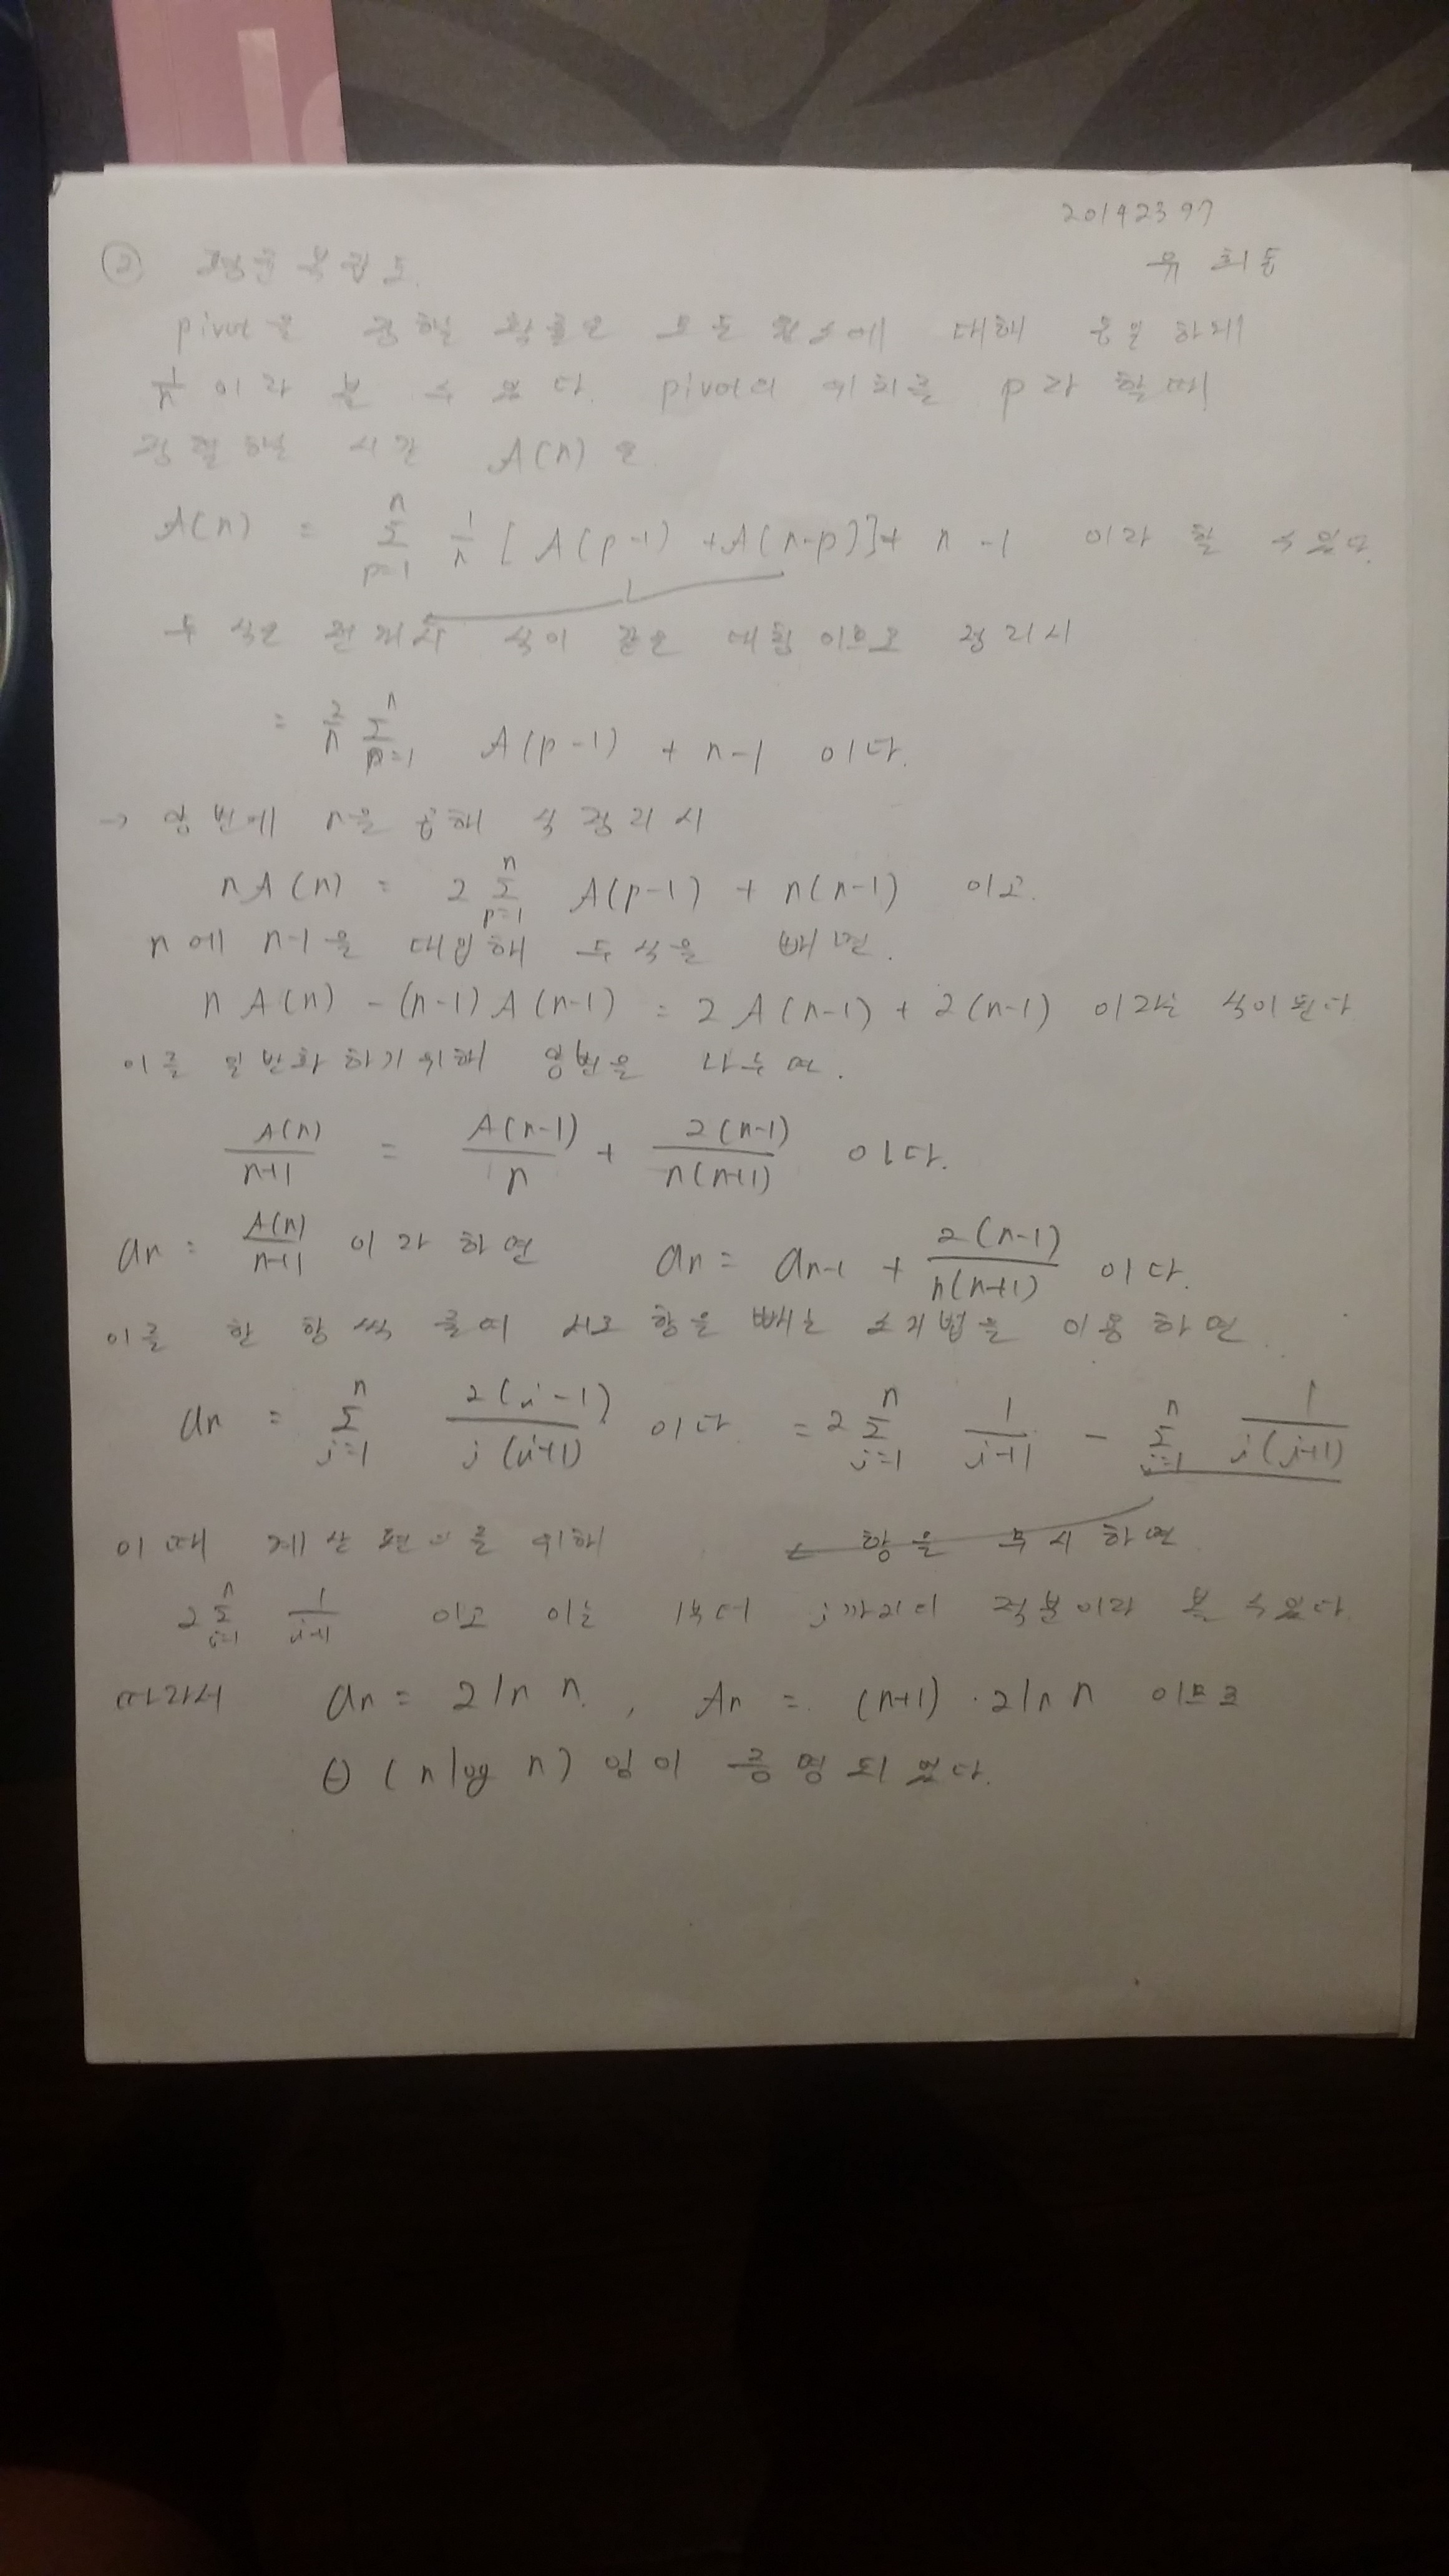 20142397
유희동
② 평균 복잡도.
pivot을 정할 확률은 모든 원소에 대해 동일하게
1/n 이라 볼 수 있다. pivot의 위치를 p라 할때
정렬하는 시간 A(n)은
A(n) = Σ_{p=1}^{n} 1/n [A(p-1) + A(n-p)] + n-1 이라 할 수 있다.
두 식은 전개시 식이 같은 대칭이므로 정리시
= 2/n Σ_{p=1}^{n} A(p-1) + n-1 이다.
→ 양변에 n을 곱해 식 정리시
nA(n) = 2 Σ_{p=1}^{n} A(p-1) + n(n-1) 이고.
n에 n-1을 대입해 두식을 빼면.
nA(n) - (n-1)A(n-1) = 2A(n-1) + 2(n-1) 이라는 식이된다
이를 일반화하기위해 양변을 나누며.
A(n)/n+1 = A(n-1)/n + 2(n-1)/n(n+1) 이다.
an = A(n)/n+1 이라하면 an = an-1 + 2(n-1)/n(n+1) 이다.
이를 한 항씩 줄여 서로 항을 빼는 소거법을 이용하면.
an = Σ_{j=1}^{n} 2(j-1)/j(j+1) 이다 = 2 Σ_{j=1}^{n} 1/j+1 - Σ_{j=1}^{n} 1/j(j+1)
이때 계산편의를 위해 항을 무시하면
2 Σ_{j=1}^{n} 1/j+1 이고 이는 1부터 j까지의 적분이라 볼 수 있다
따라서 an = 2 ln n. , An = (n+1) · 2 ln n 이므로
Θ(n log n) 임이 증명되었다.